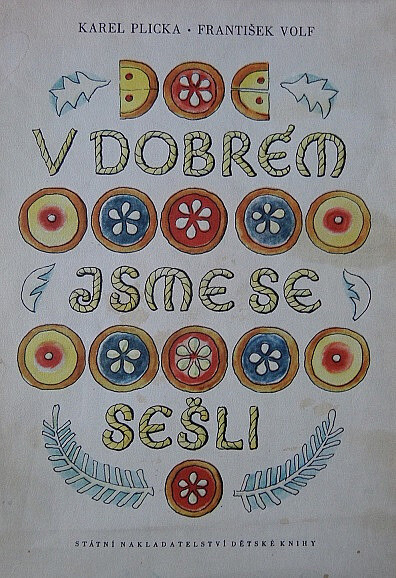 KAREL PLICKA • FRANTIŠEK VOLF
V DOBRÉM
JSME SE
SEŠLI
STÁTNÍ NAKLADATELSTVÍ DĚTSKÉ KNIHY